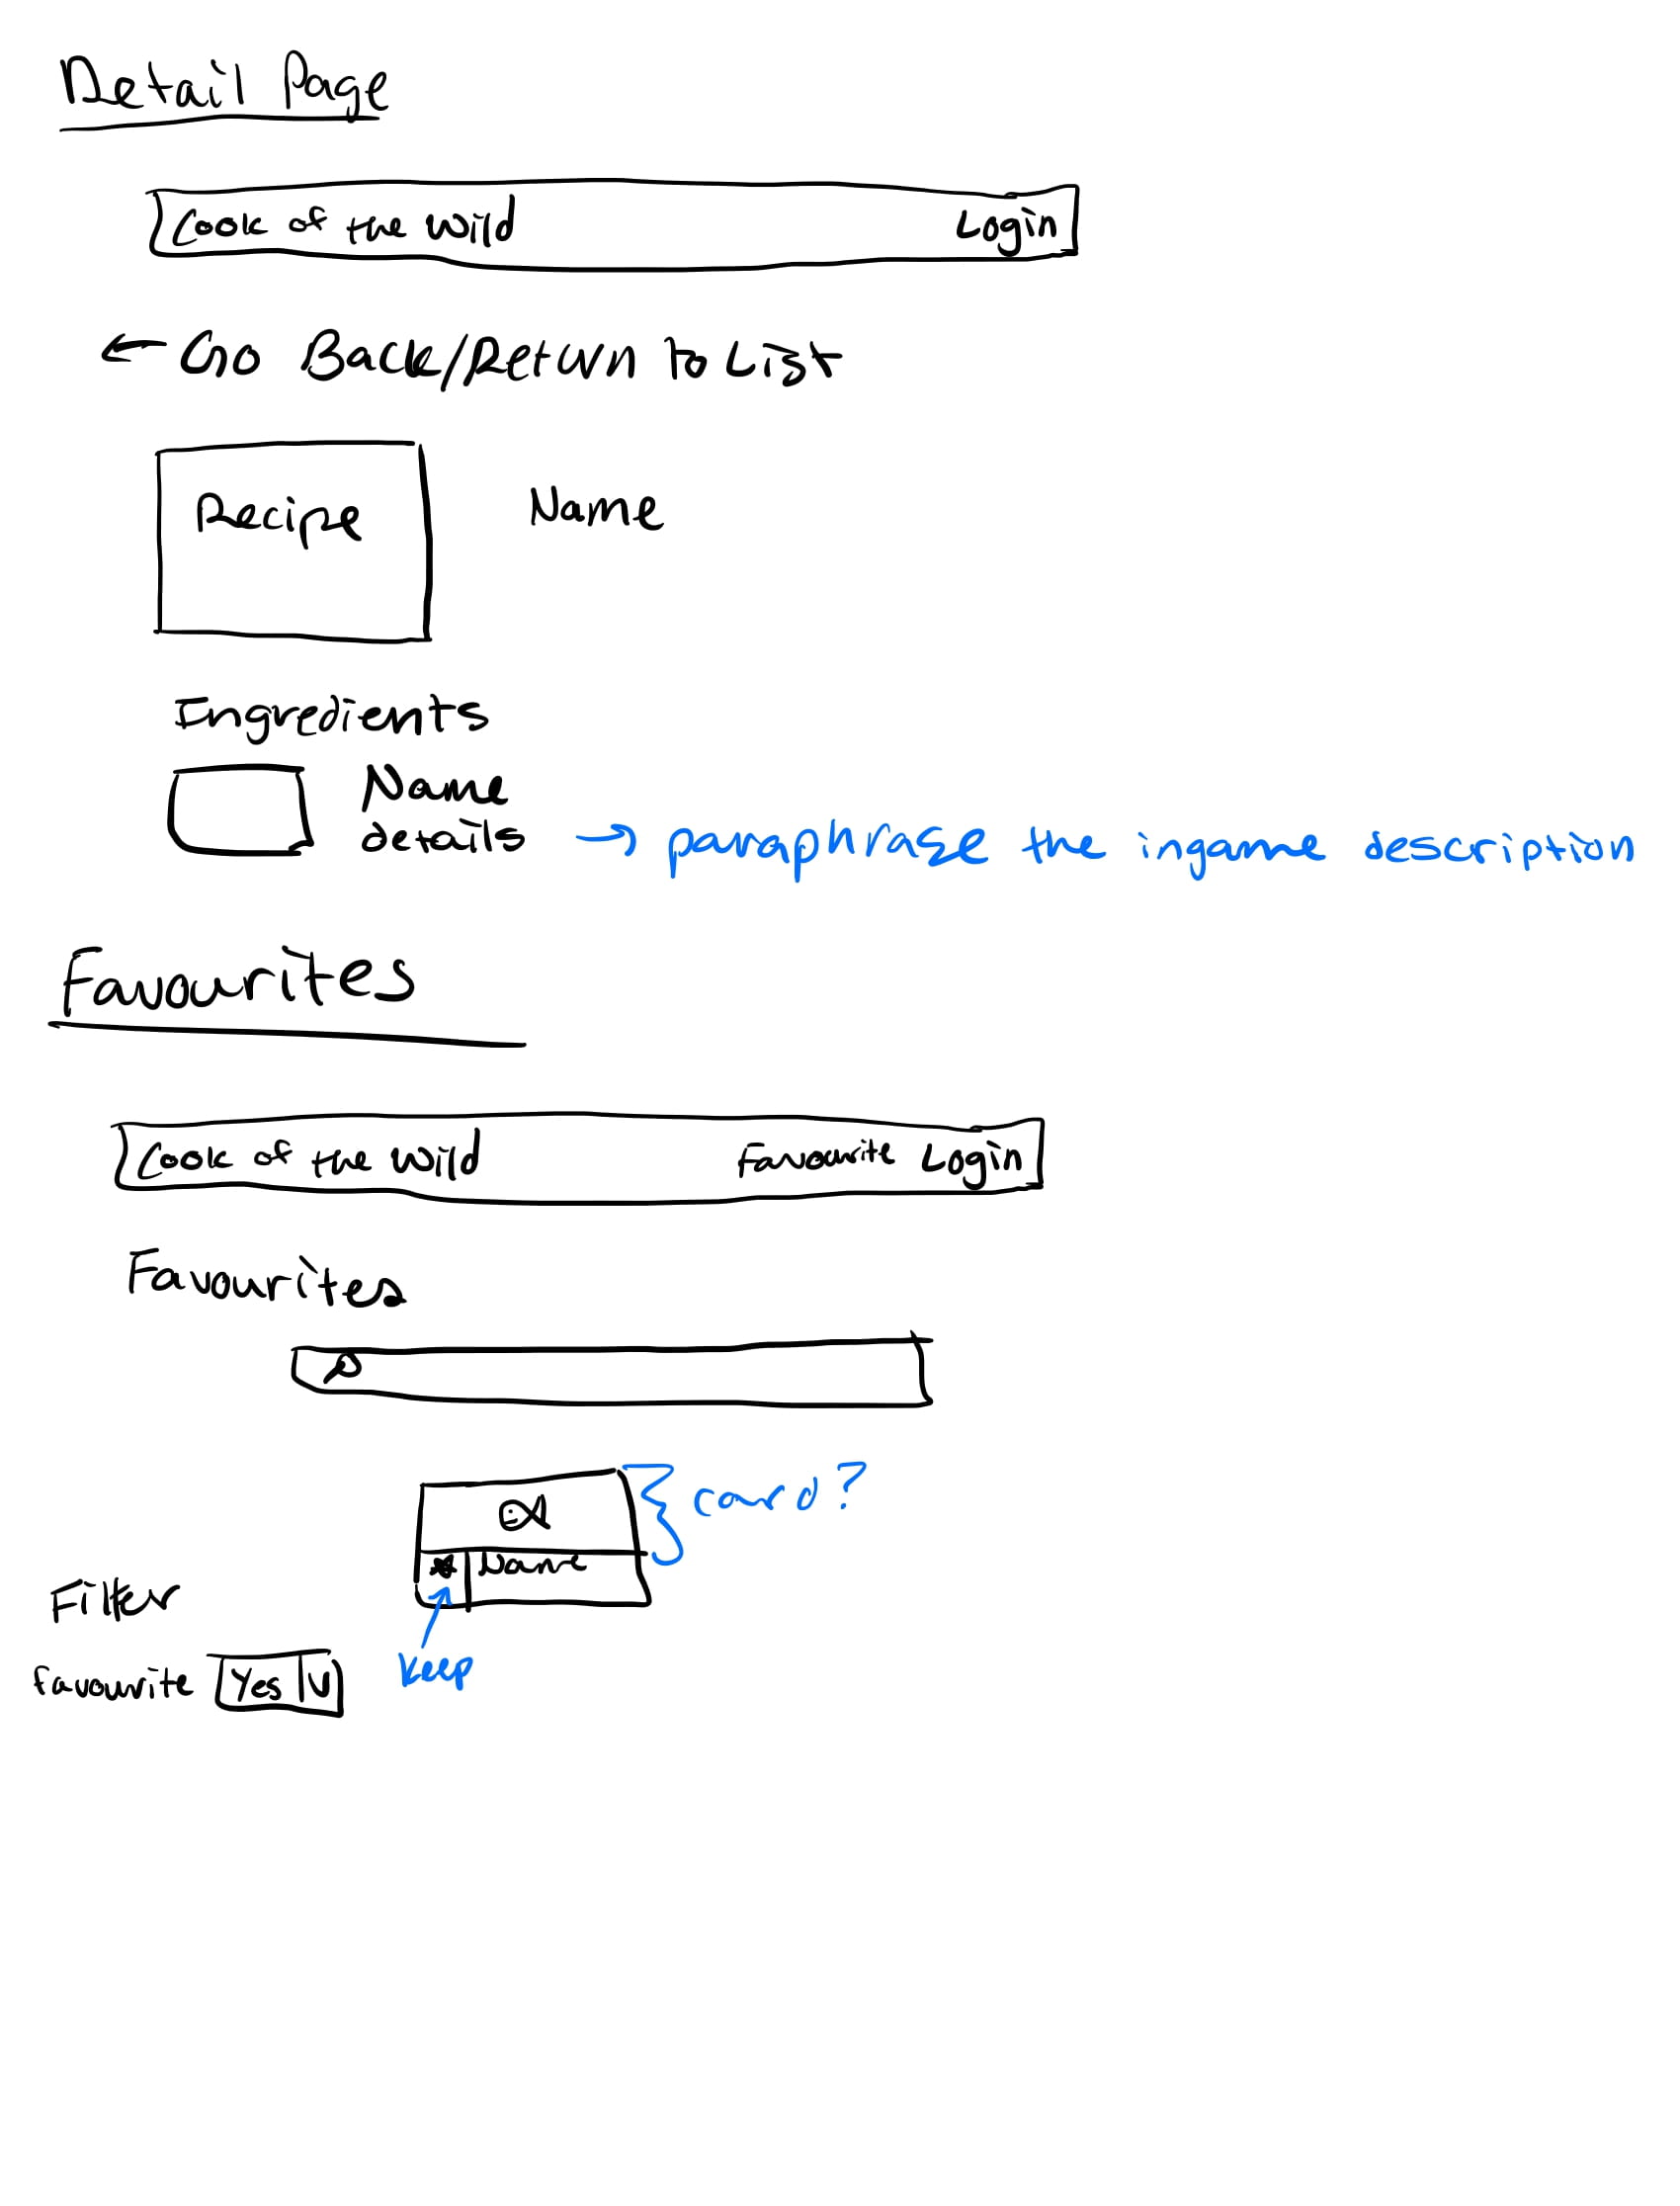 Detail Page
Cook of the Wild Login
← Go Back/Return to List
Recipe Name
Ingredients
Name
details → paraphrase the ingame description
Favourites
Cook of the Wild Favourite Login
Favourites
card?
Name
Filter
keep
favourite Yes